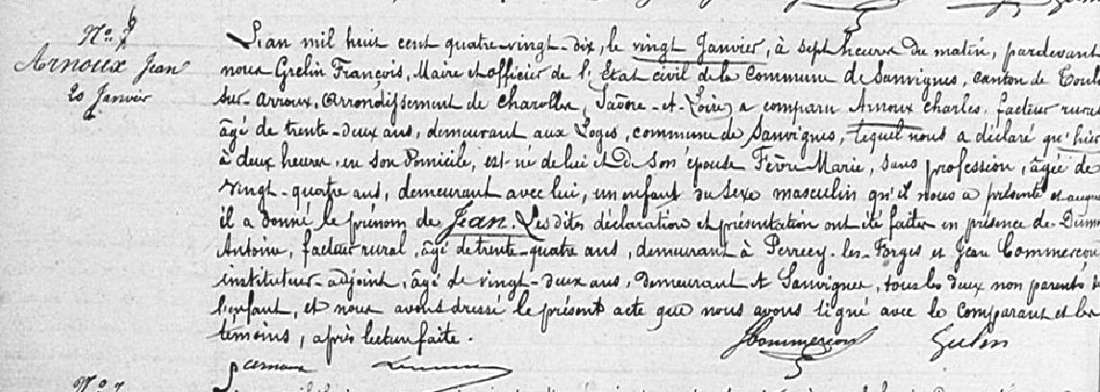 Arnoux Jean
20 Janvier
L'an mil huit cent quatre-vingt-dix, le vingt Janvier, à sept heures du matin, pardevant
nous Grelin François, Maire et officier de l'État civil de la Commune de Sanvignes, canton de Toulo
sur-Arroux, arrondissement de Charolles, Saône-et-Loire, a comparu Arnoux Charles, facteur rural
âgé de trente-deux ans, demeurant aux Loges, commune de Sanvignes, lequel nous a déclaré qu'hier
à deux heures, en son domicile, est né de lui et de son épouse Fèvre Marie, sans profession, âgée de
vingt-quatre ans, demeurant avec lui, un enfant du sexe masculin qu'il nous a présenté et auquel
il a donné le prénom de Jean. Les dites déclaration et présentation ont été faites en présence de
Antoine, facteur rural, âgé de trente-quatre ans, demeurant à Perrecy-les-Forges et Jean Commerçon
instituteur-adjoint, âgé de vingt-deux ans, demeurant à Sanvignes, tous les deux non parents de
l'enfant, et nous avons dressé le présent acte que nous avons signé avec le comparant et les
témoins, après lecture faite.
JCommerçon